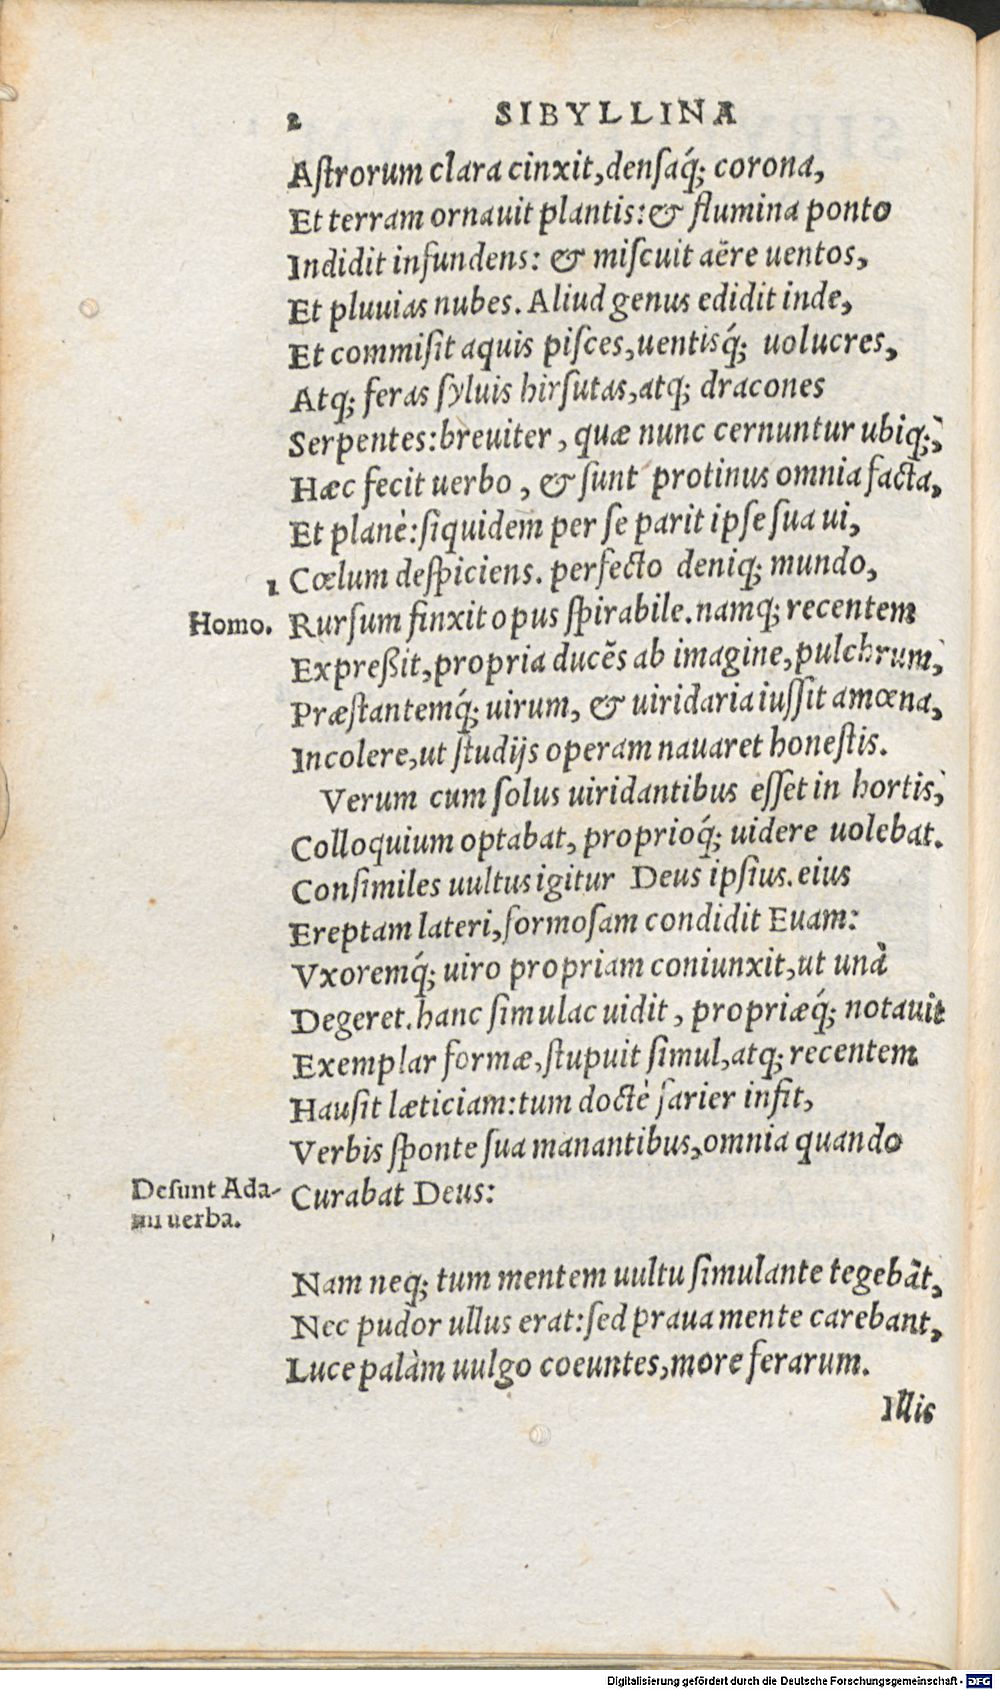 2 SIBYLLINA
Aſtrorum clara cinxit, denſaq́; corona,
Et terram ornauit plantis: & flumina ponto
Indidit infundens: & miſcuit aëre uentos,
Et pluuias nubes. Aliud genus edidit inde,
Et commiſit aquis piſces, uentisq́; uolucres,
Atq; feras ſyluis hirſutas, atq; dracones
Serpentes: breuiter, quæ nunc cernuntur ubiq;,
Hæc fecit uerbo, & ſunt protinus omnia facta,
Et planè: ſiquidem per ſe parit ipſe ſua ui,
1 Cœlum deſpiciens. perfecto deniq; mundo,
Homo. Rurſum finxit opus ſpirabile. namq; recentem
Expreßit, propria ducēs ab imagine, pulchrum,
Præſtantemq́; uirum, & uiridaria iuſſit amœna,
Incolere, ut ſtudijs operam nauaret honeſtis.
Verum cum ſolus uiridantibus eſſet in hortis,
Colloquium optabat, proprioq́; uidere uolebat.
Conſimiles uultus igitur Deus ipſius. eius
Ereptam lateri, formoſam condidit Euam:
Vxoremq́; uiro propriam coniunxit, ut unà
Degeret. hanc ſimulac uidit, propriæq́; notauit
Exemplar formæ, ſtupuit ſimul, atq; recentem
Hauſit læticiam: tum doctè farier infit,
Verbis ſponte ſua manantibus, omnia quando
Deſunt Ada- Curabat Deus:
mi uerba.
Nam neq; tum mentem uultu ſimulante tegebāt,
Nec pudor ullus erat: ſed praua mente carebant,
Luce palàm uulgo coeuntes, more ferarum.
Illis
Digitalisierung gefördert durch die Deutsche Forschungsgemeinschaft - DFG